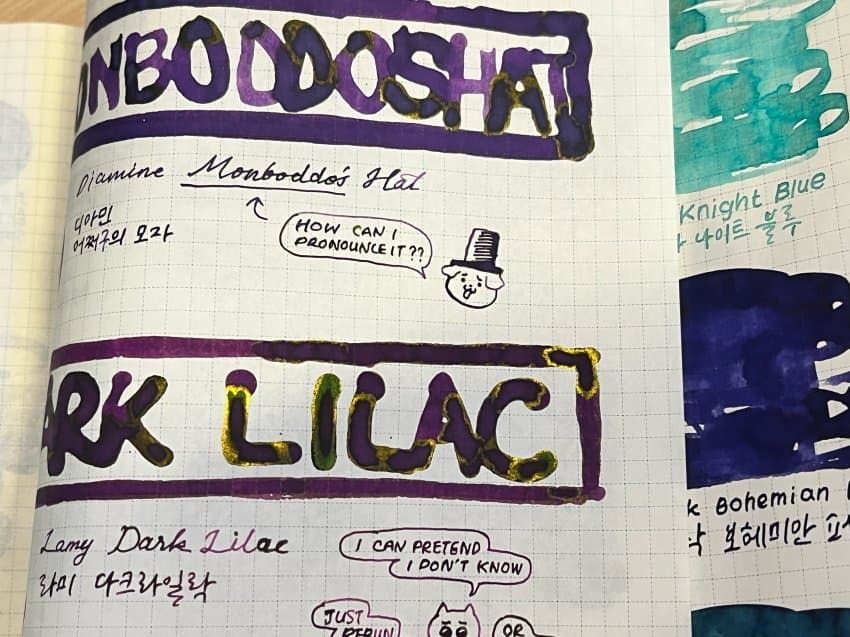 ONBODDOSHAT
Diamine Monboddo's Hat
디아민
어쩌구의 모자
HOW CAN I
PRONOUNCE IT??
ARK LILAC
Lamy Dark Lilac
라미 다크라일락
I CAN PRETEND
I DON'T KNOW
JUST
OR
Knight Blue
나이트 블루
Bohemian
보헤미안